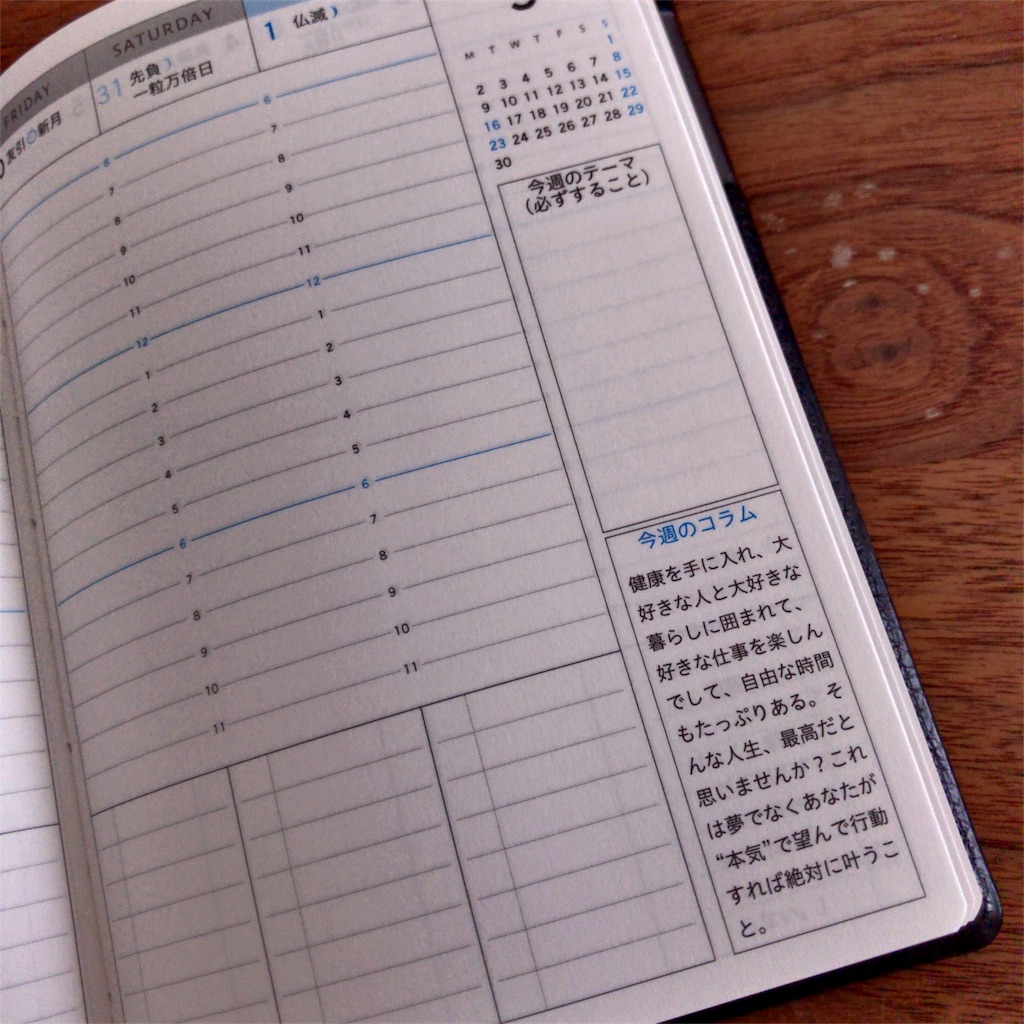 FRIDAY
友引 新月
SATURDAY
31 先負
一粒万倍日
1 仏滅
6
7
8
9
10
11
12
1
2
3
4
5
6
7
8
9
10
11
6
7
8
9
10
11
12
1
2
3
4
5
6
7
8
9
10
11
M T W T F S S
1
2 3 4 5 6 7 8
9 10 11 12 13 14 15
16 17 18 19 20 21 22
23 24 25 26 27 28 29
30
今週のテーマ
(必ずすること)
今週のコラム
健康を手に入れ、大
好きな人と大好きな
暮らしに囲まれて、
好きな仕事を楽しん
でして、自由な時間
もたっぷりある。そ
んな人生、最高だと
思いませんか？これ
は夢でなくあなたが
“本気”で望んで行動
すれば絶対に叶うこ
と。